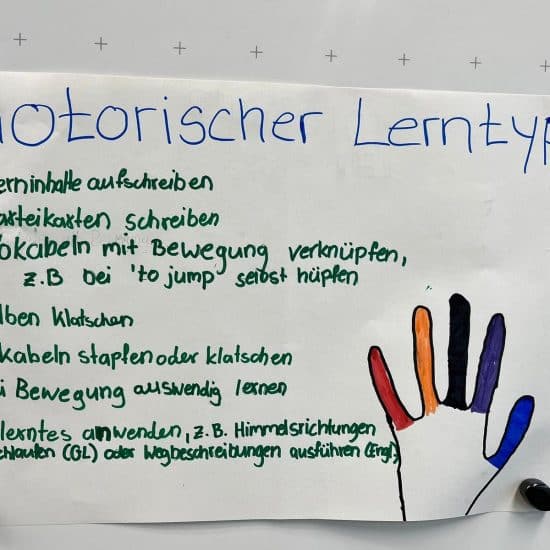 otorischer Lerntyp
erninhalte aufschreiben
arteikarten schreiben
okabeln mit Bewegung verknüpfen,
z.B bei 'to jump' selbst hüpfen
lben klatschen
kabeln stapfen oder klatschen
i Bewegung auswendig lernen
lerntes anwenden, z.B. Himmelsrichtungen
chlaufen (GL) oder Wegbeschreibungen ausführen (Engl)